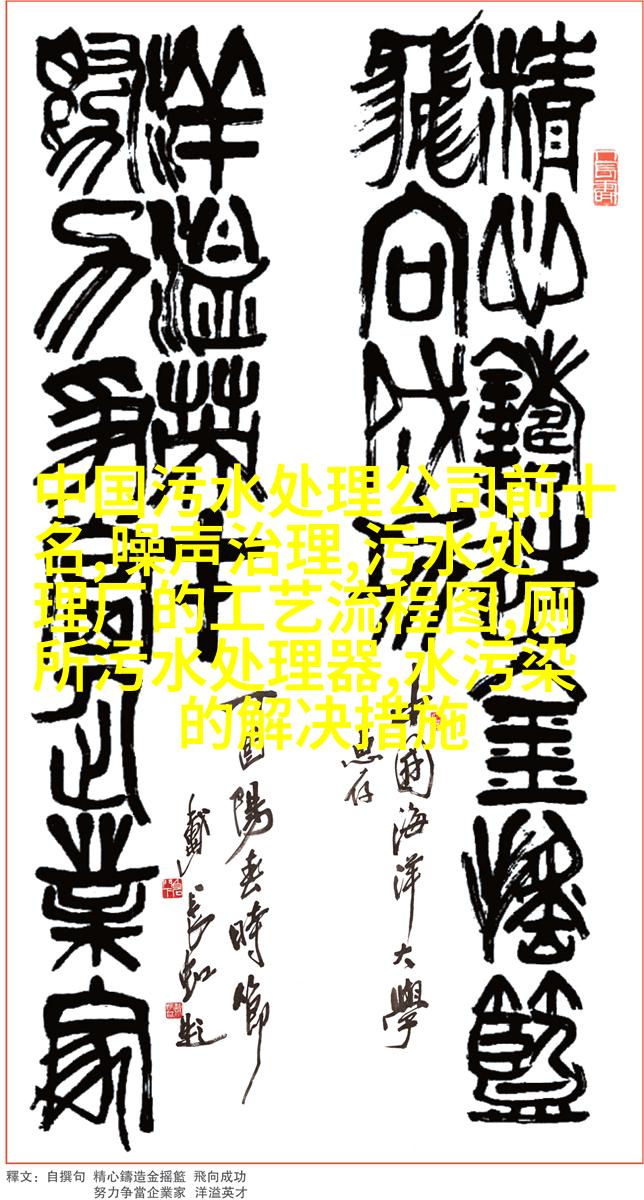 精心鑄造金摇籃
飛向成功
中國海洋大學
惠存
洋溢英才
努力争當企業家
丁酉陽春時節
戴長虹題
中国污水处理公司前十
名,噪声治理,污水处
理厂的工艺流程图,厕
所污水处理器,水污染
的解决措施
釋文：自撰句 精心鑄造金摇籃 飛向成功
努力争當企業家 洋溢英才